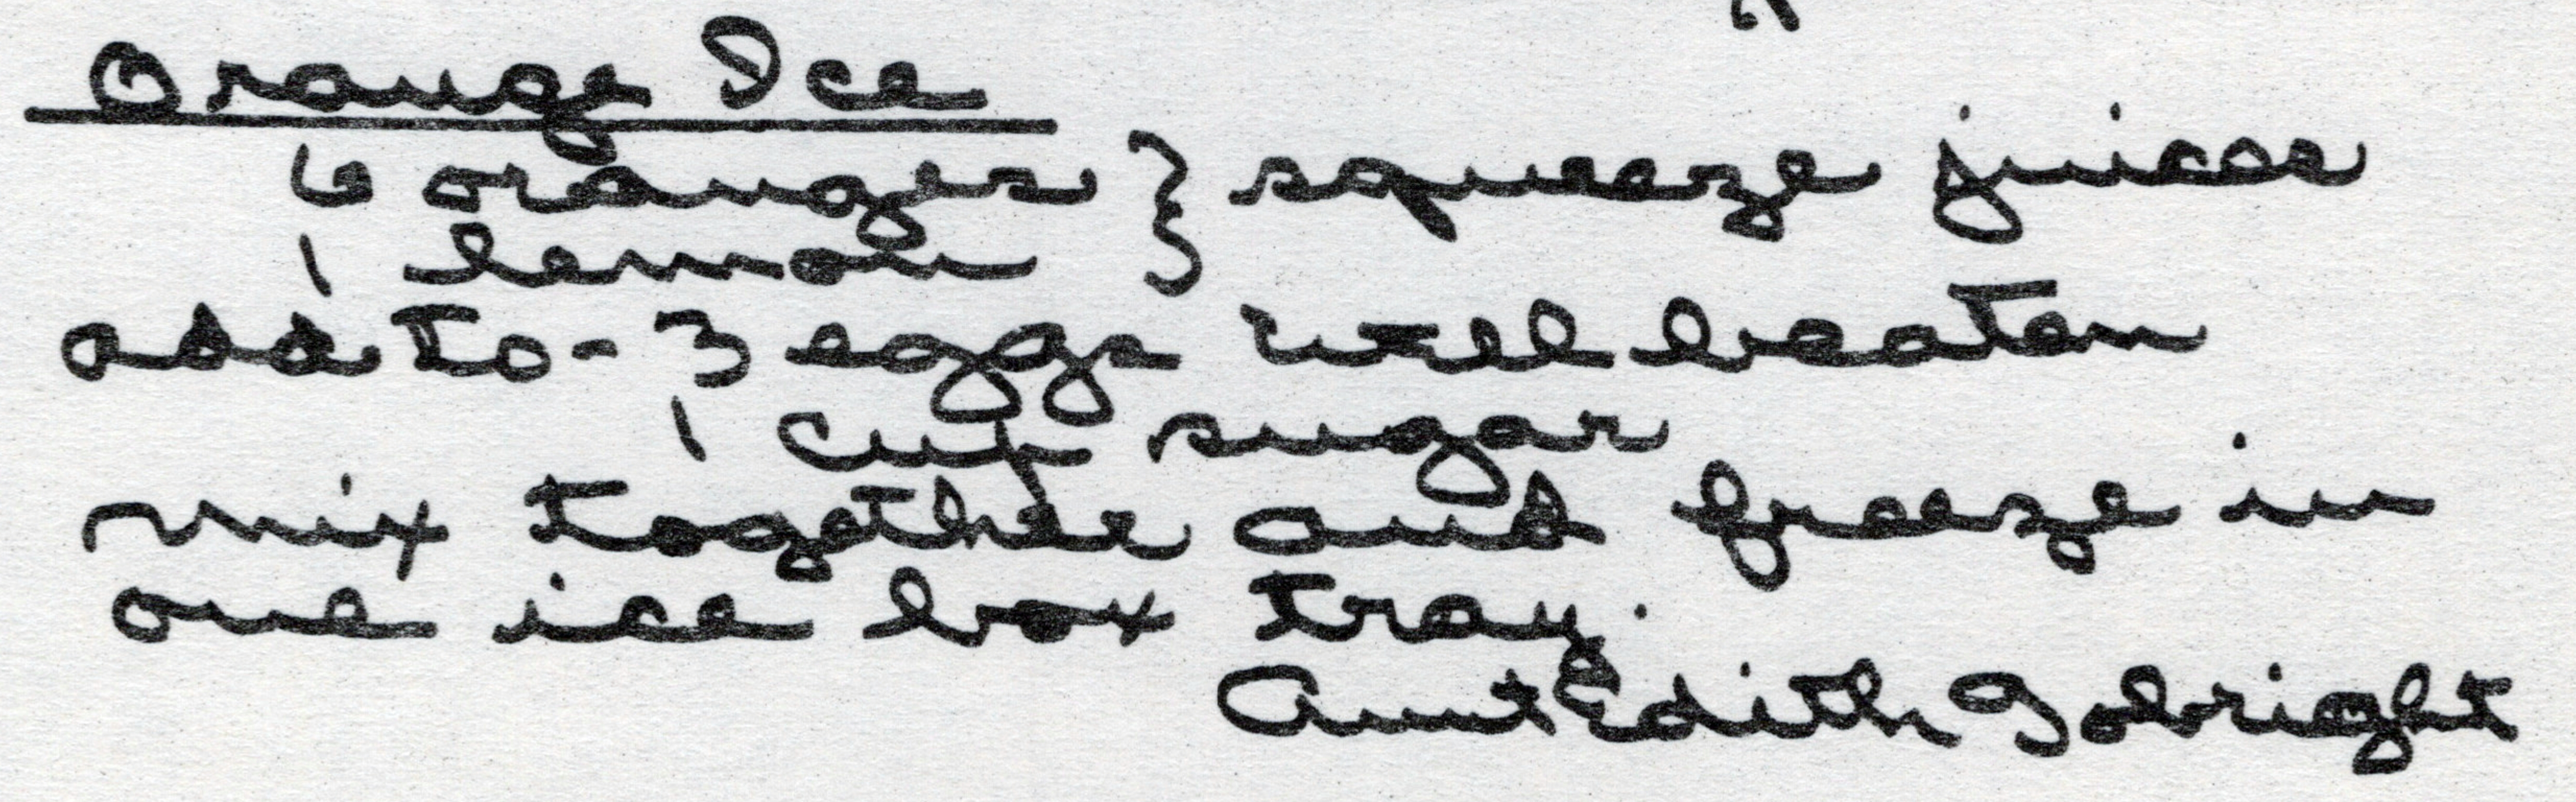 Orange Ice
6 oranges } squeeze juices
1 lemon
add to - 3 eggs well beaten
1 cup sugar
mix together and freeze in
one ice box tray.
Aunt Edith Gobright